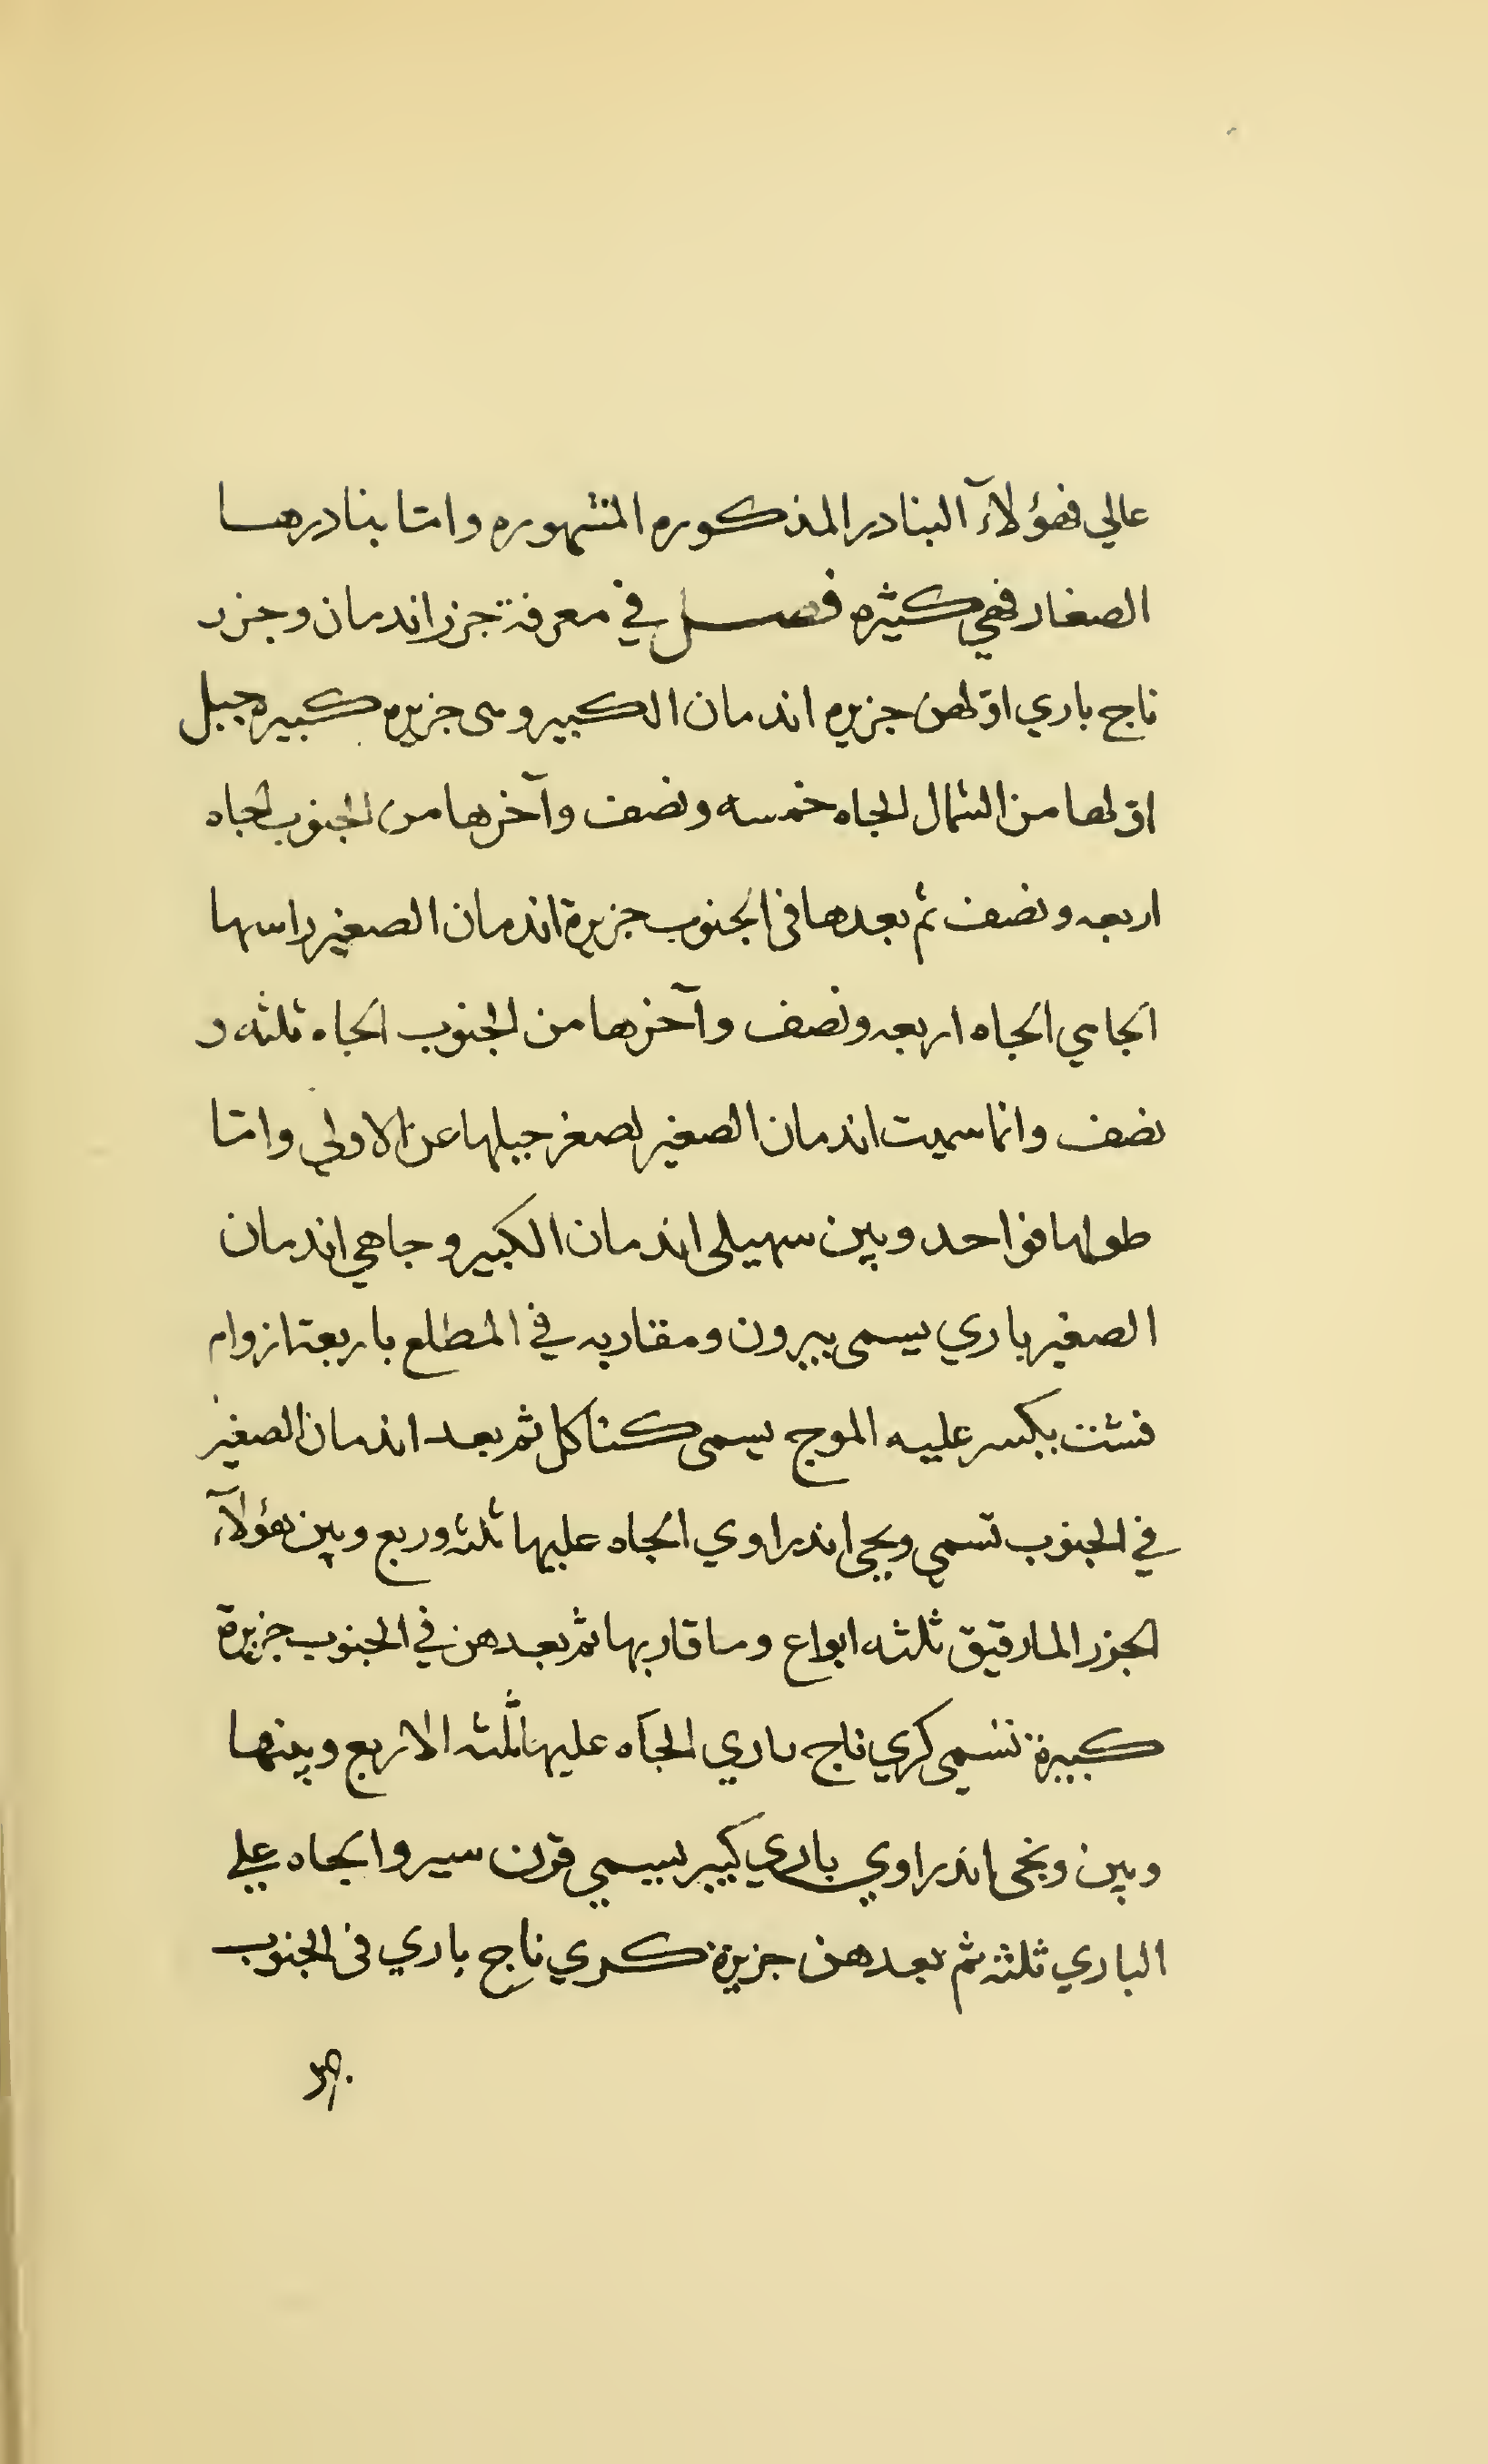 عالي فهؤلآء البنادر المذكوره المشهوره وامّا بنادرها
الصغار فهي كثيره فصل في معرفة جزر اندمان وجزر
ناج باري اوّلهن جزيره اندمان الكبير وهى جزيره كبيره جبل
اوّلها من الشمال الجاه خمسه ونصف وآخرها من الجنوب الجاه
اربعه ونصف ثم بعدها فى الجنوب جزيرة اندمان الصغير راسها
الجاهي الجاه اربعه ونصف وآخرها من الجنوب الجاه ثلثه و
نصف وانما سميت اندمان الصغير لصغر جبلها عن الاولي وامّا
طولها فواحد وبين سهيلى اندمان الكبير وجاهي اندمان
الصغير باري يسمى بيرون ومقاربه في المطلع باربعة ازوام
فشت يكسر عليه الموج يسمى كناكل ثم بعد اندمان الصغير
في الجنوب تسمي ويجى اندراوي الجاه عليها ثلثه وربع وبين هؤلآء
الجزر الما رقيق ثلثه ابواع وما قاربها ثم بعدهن في الجنوب جزيرة
كبيرة تسمى كري ناج باري الجاه عليها ثلثه الا ربع وبينها
وبين ويجى اندراوي باري كبير يسمي قرن سيروا الجاه علي
الباري ثلثه ثم بعدهن جزيرة كري ناج باري فى الجنوب